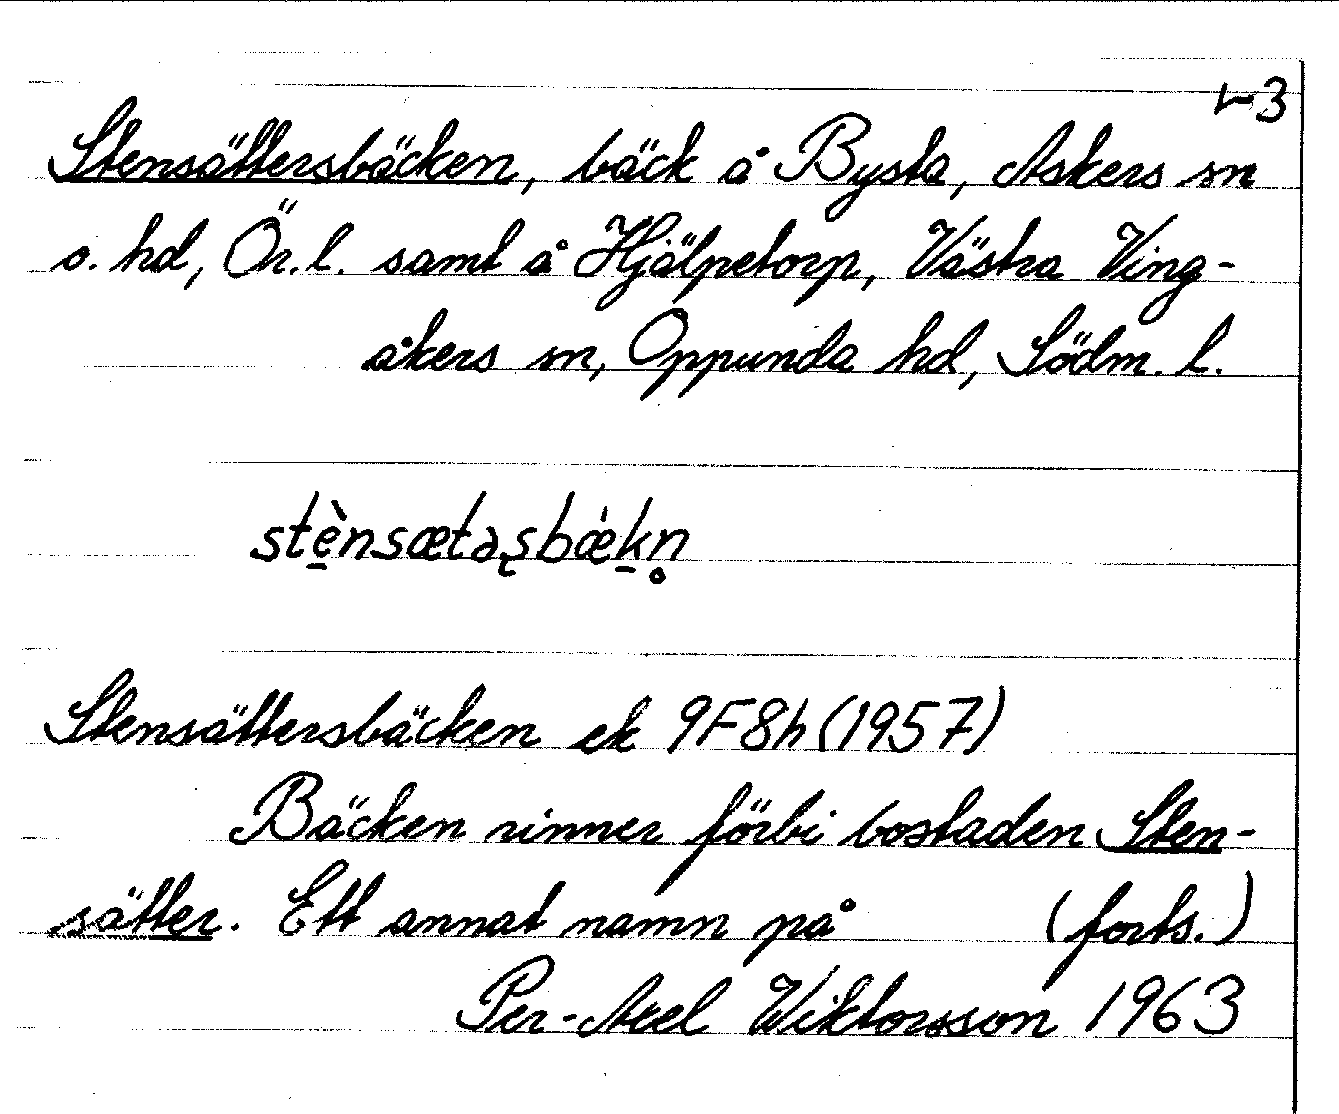 43
Stensättersbäcken, bäck å Bysta, Askers sn
o. hd, Ör. l. samt å Hjälpetorp, Västra Ving-
åkers sn, Oppunda hd, Södm. l.
stè̱nsætəʂbǽḵn̥
Stensättersbäcken ek 9F8h (1957)
Bäcken rinner förbi bostaden Sten-
sätter. Ett annat namn på (forts.)
Per-Axel Wiktorsson 1963